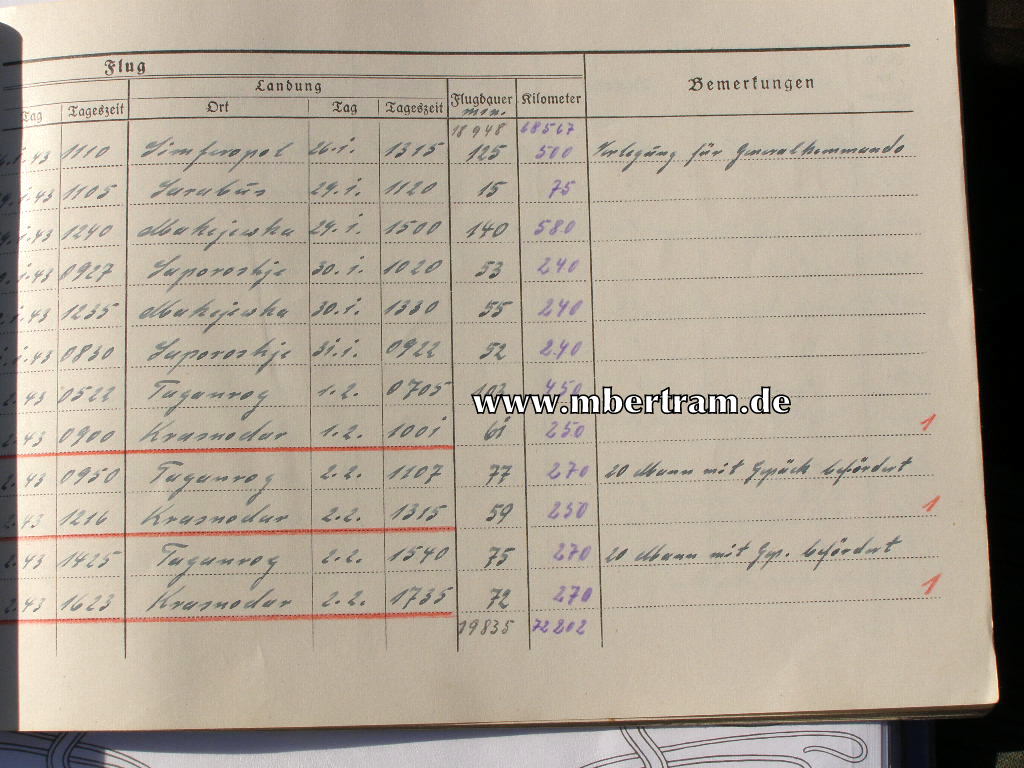 Flug
Landung Bemerkungen
Tag Tageszeit Ort Tag Tageszeit Flugdauer min. Kilometer
18948 68567
.1.43 1110 Simferopol 26.1. 1315 125 500 Verlegung für Generalkommando
.1.43 1105 Sarabus 29.1. 1120 15 75
.1.43 1240 Makejewka 29.1. 1500 140 580
.1.43 0927 Saporoshje 30.1. 1020 53 240
.1.43 1235 Makejewka 30.1. 1330 55 240
.1.43 0830 Saporoshje 31.1. 0922 52 240
.2.43 0522 Taganrog 1.2. 0705 103 450
www.mbertram.de
2.43 0900 Krasnodar 1.2. 1001 61 250 1
2.43 0950 Taganrog 2.2. 1107 77 270 20 Mann mit Gepäck befördert
2.43 1216 Krasnodar 2.2. 1315 59 250 1
2.43 1425 Taganrog 2.2. 1540 75 270 20 Mann mit Gep. befördert
2.43 1623 Krasnodar 2.2. 1735 72 270 1
19835 72202